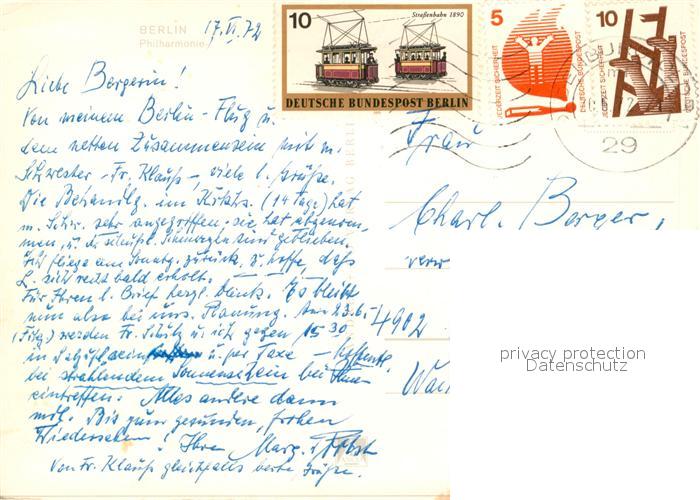 BERLIN
Philharmonie
17. VI. 72
10
Straßenbahn 1890
DEUTSCHE BUNDESPOST BERLIN
5
JEDERZEIT SICHERHEIT
DEUTSCHE BUNDESPOST
10
JEDERZEIT SICHERHEIT
DEUTSCHE BUNDESPOST
29
Liebe Bergerin!
Von meinem Berlin-Flug u.
dem netten Zusammensein mit m.
Schwester - Fr. Klauß -, viele l. Grüße.
Die Behandlg. im Krkhs. (14 Tage) hat
m. Schw. sehr angegriffen; sie hat abgenom-
men, u. die sind geblieben.
Ich fliege am Sonntg. zurück u. hoffe, daß
L. sich recht bald erholt. —
Für Ihren l. Brief herzl. Dank. Es bleibt
nun also bei uns. Planung. Am 23.6.
(Freitg) werden Fr. u. ich gegen 15 30
in u. per Taxe —
bei strahlendem Sonnenschein bei Ihnen
eintreffen. Alles andere dann
mdl. Bis zum gesunden, frohen
Wiedersehen! Ihre Marg.
Von Fr. Klauß gleichfalls herzl. Grüße.
Frau
Charl. Berger,
4902
privacy protection
Datenschutz